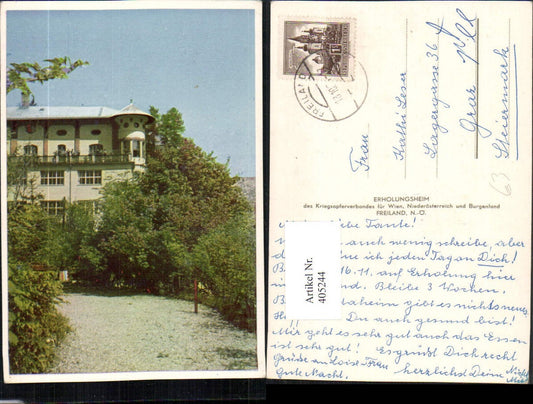 FREILAND
Frau
Käthi Leser
Legergasse 36
Graz
Steiermark
63
ERHOLUNGSHEIM
des Kriegsopferverbandes für Wien, Niederösterreich und Burgenland
FREILAND, N.-Ö.
Artikel Nr.
405244
liebe Tante!
auch wenig schreibe, aber
ich jeden Tag an Dich!
16.11. auf Erholung hier
Bleibe 3 Wochen.
daheim gibt es nichts neues,
Du auch gesund bist!
Mir geht es sehr gut auch das Essen
ist sehr gut! Es grüßt Dich recht
Grüße an Frau herzlichst Deine
Gute Nacht.